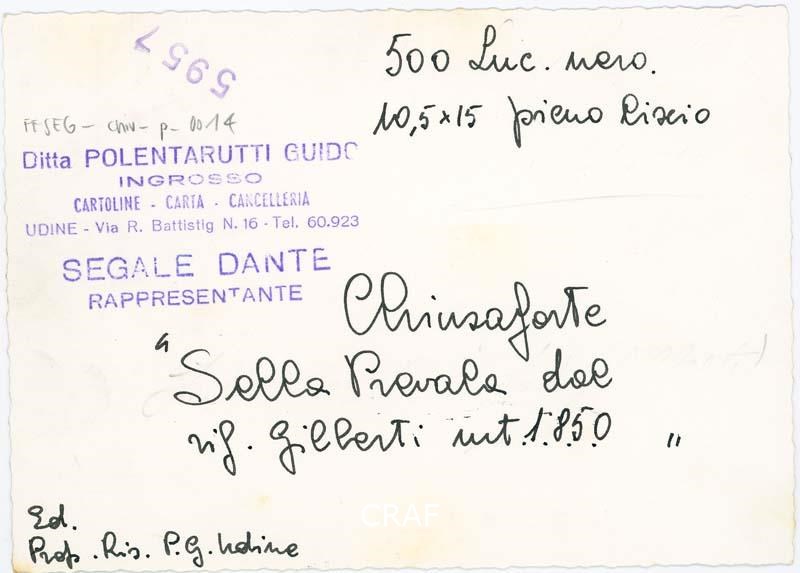 5957
500 Luc. nero.
10,5×15 pieno liscio
FFSEG - Chiu - p - 0014
Ditta POLENTARUTTI GUIDO
INGROSSO
CARTOLINE - CARTA - CANCELLERIA
UDINE - Via R. Battistig N. 16 - Tel. 60.923
SEGALE DANTE
RAPPRESENTANTE
Chiusaforte
"Sella Prevala dal
rif. Gilberti mt. 1.850 "
CRAF
Ed.
Prop. Ris. P.G. Udine